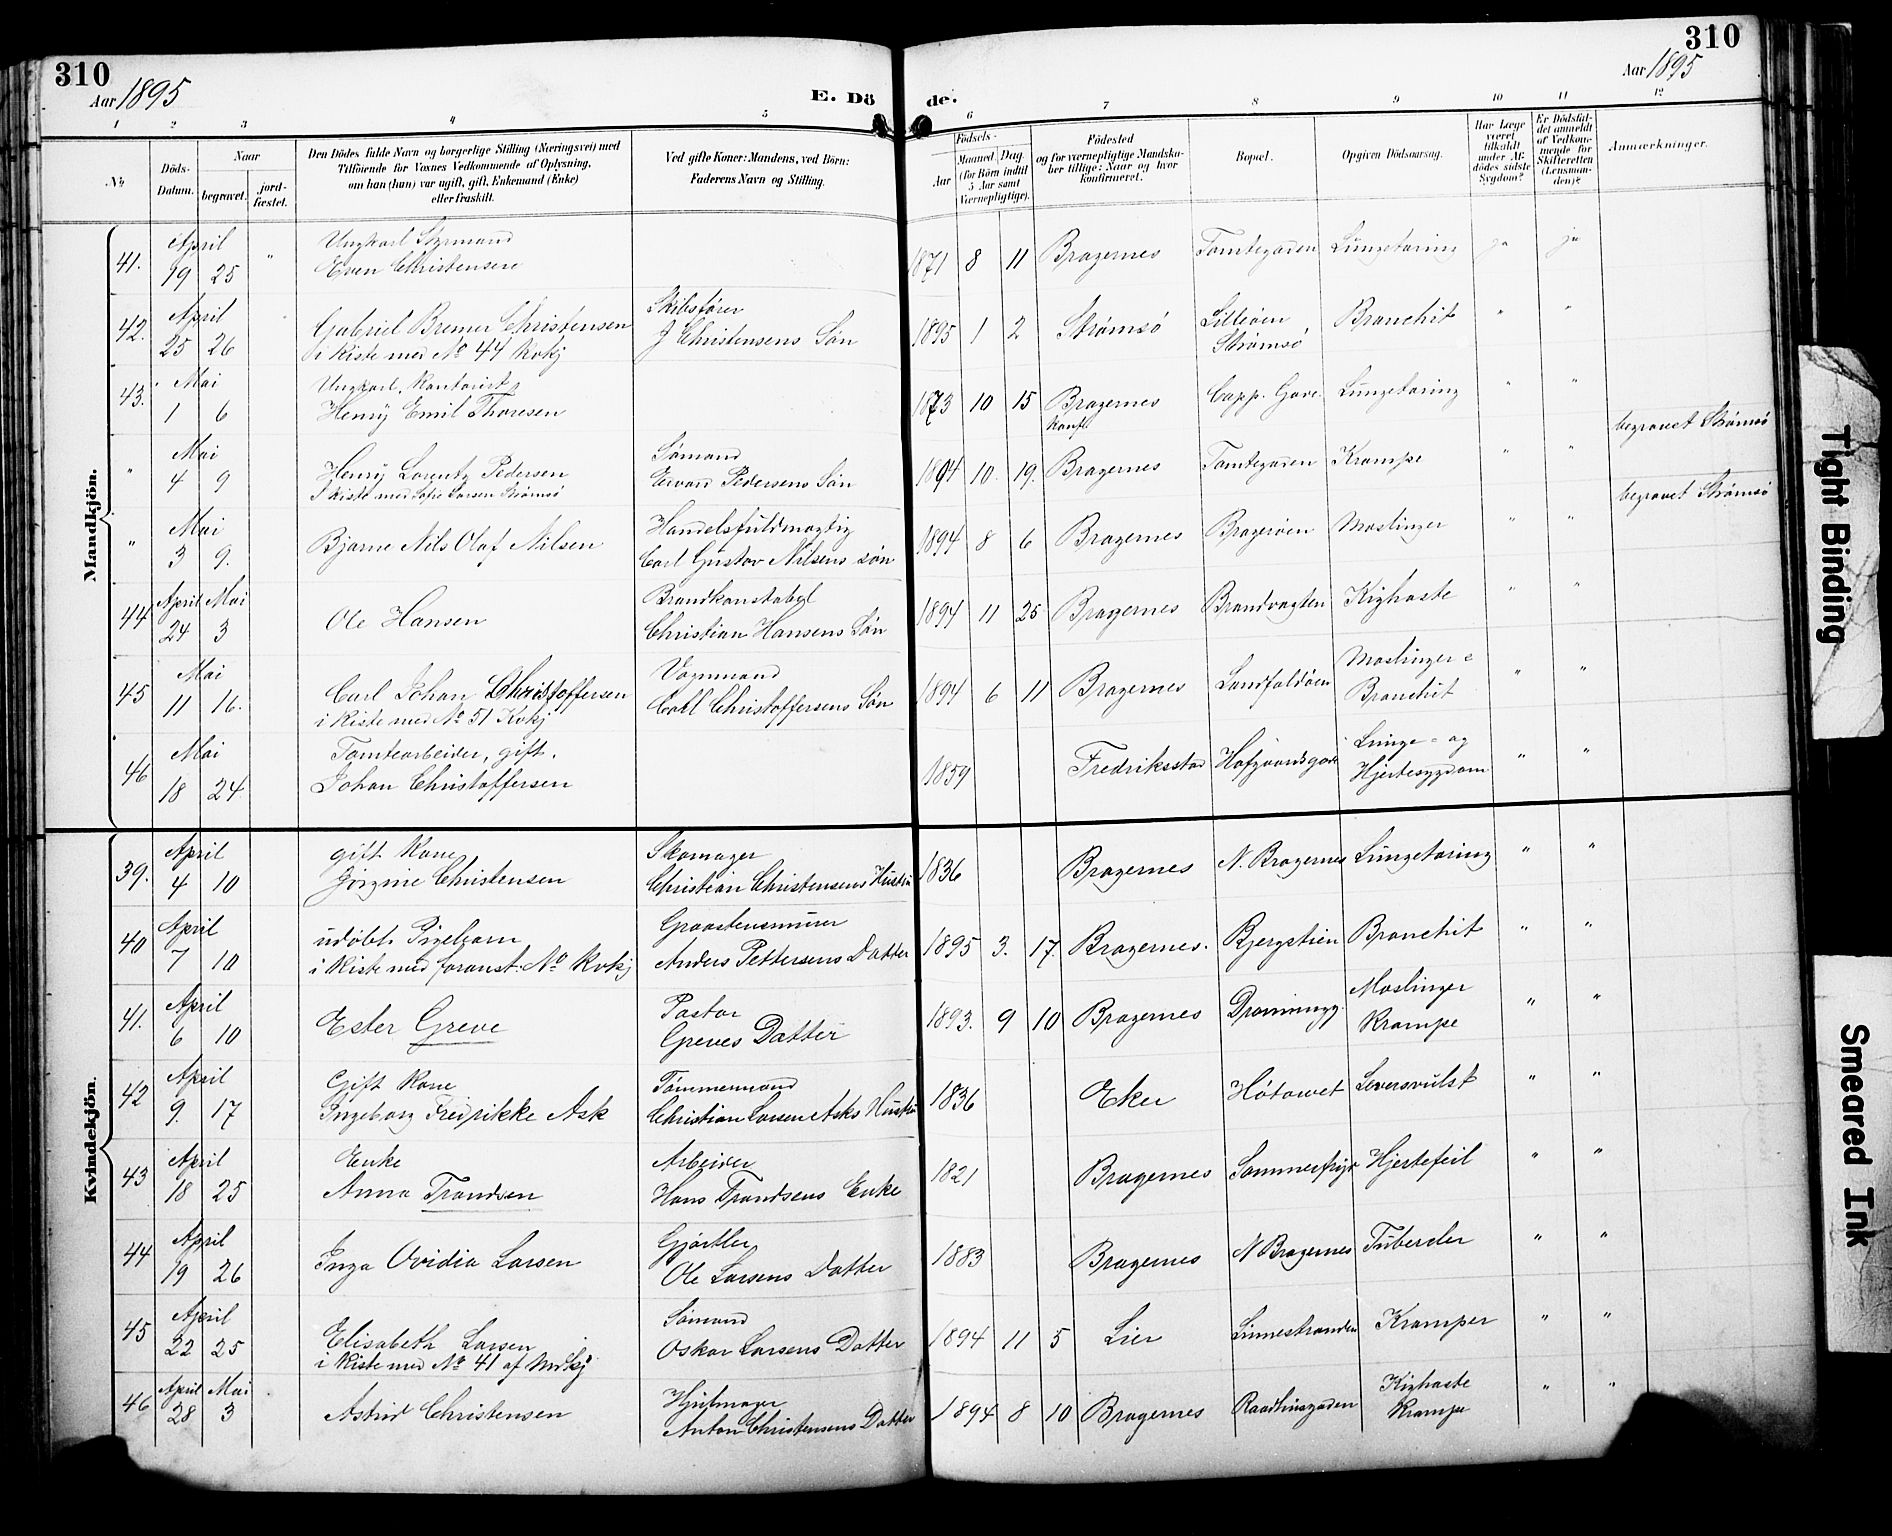 310
Aar 1895
E. Döde.
310
Aar 1895
1 2 3 4 5 6 7 8 9 10 11 12
No
Döds-Datum.
Naar
begravet.
jordfæstet.
Den Dödes fulde Navn og borgerlige Stilling (Næringsvei) med
Tilföiende for Voxnes Vedkommende af Oplysning,
om han (hun) var ugift, gift, Enkemand (Enke)
eller fraskilt.
Ved gifte Koner: Mandens, ved Börn:
Faderens Navn og Stilling.
Födsels-
Aar
Maaned. Dag.
(for Börn indtil
5 Aar samt
Værnepligtige).
Födested
og for værnepligtige Mandska-
ber tillige: Naar og hvor
konfirmeret.
Bopæl.
Opgiven Dödsaarsag.
Har Læge
været
tilkaldt
under Af-
dödes sidste
Sygdom?
Er Dödsfal-
det anmeldt
af Vedkom-
mende for
Skifteretten
(Lensman-
den)?
Anmærkninger.
Mandkjön.
41. April 19 25 " Ungkarl Styrmand Even Christensen 1871 8 11 Bragernes Tomtegaden Lungetæring ja ja
42. April 25 26 Gabriel Bremer Christensen i Kiste med No 44 Kvkj Skibsfører J Christensens Søn 1895 1 2 Strømsø Lilleøen Strømsø Bronchit " "
43. Mai 1 6 Ungkarl, Kontorist, Henry Emil Thoresen 1873 10 15 Bragernes Konf. Capp. Gave. Lungetæring " "
" Mai 4 9 Henry Lorentz Pedersen I Kiste med Sofie Larsen Strømsø Sømand Edvard Pedersens Søn 1894 10. 19. Bragernes Tomtegaden Krampe " " begravet Strømsø
" Mai 3 9. Bjarne Nils Olaf Nilsen Handelsfuldmægtig Carl Gustav Nilsens søn 1894 8 6 Bragernes Bragerøen Mæslinger " " begravet Strømsø
44 April 24 Mai 3 Ole Hansen Brandkonstabel Christian Hansens Søn 1894 11 25 Bragernes Brandvagten Kighoste " "
45 Mai 11 16. Carl Johan Christoffersen i Kiste med No 51 Kvkj Vognmand Carl Christoffersens Søn 1894 6 11 Bragernes Landfaldøen Mæslinger = Bronchit " "
46 Mai 18 24. Tomtearbeider, gift. Johan Christoffersen 1859 Fredriksstad Hofgaardsgade Lunge = og Hjertesygdom " "
Kvindekjön.
39. April 4 10 gift Kone Jørgine Christensen Skomager Christian Christensens Hustru 1836 Bragernes N. Bragernes Lungetæring " "
40 April 7 10 udøbt Pigebarn i Kiste med foranst. No Kvkj Graastensmurer Anders Pettersens Datter 1895 3. 17. Bragernes. Bjergstien Bronchit " "
41. April 6 10 Ester Greve Pastor Greves Datter 1893. 9 10 Bragernes Dronningg. Mæslinger Krampe " "
42 April 9. 17 Gift Kone Ingeborg Fredrikke Ask Tømmermand Christian Larsen Asks Hustru 1836 Eker Høtorvet Leversvulst " "
43 April 18 25 Enke Anna Trondsen Arbeider Hans Trondsens Enke 1821 Bragernes Sommerfryd Hjertefeil " "
44 April 19 26 Inga Ovidia Larsen Gjørtler Ole Larsens Datter 1883 Bragernes N Bragernes Tuberder " "
45 April 22 25 Elisabeth Larsen i Kiste med No 41 af Mdkj Sømand Oskar Larsens Datter 1894 11 5 Lier Linnestranden Kramper " "
46 April 28 Mai 3 Astrid Christensen Hjulmager Anton Christensens Datter 1894 8 10 Bragernes Raadhusgaden Kighoste Krampe " "
Tight Binding
Smeared Ink